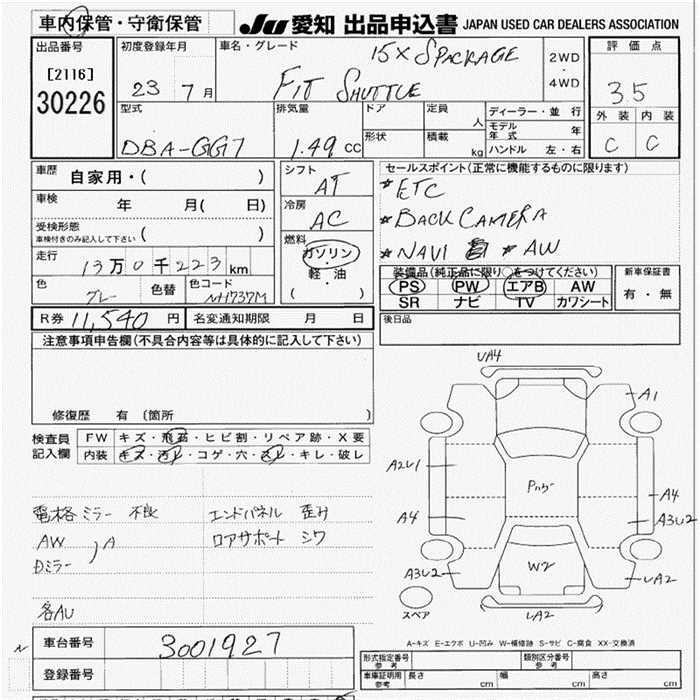 車内保管・守衛保管
JU 愛知 出品申込書 JAPAN USED CAR DEALERS ASSOCIATION
出品番号
[2116]
30226
初度登録年月
23 7 月
車名・グレード
15X SPACKAGE
FIT SHUTTLE
2WD
・
4WD
評価点
3.5
外装 内装
C C
型式
DBA-GG7
排気量
1.49 CC
ドア
定員
人
形状
積載
kg
ディーラー・並行
モデル年式 年
ハンドル 左・右
車歴 自家用・( )
車検 年 月( 日)
受検形態
車検付きのみ記入して下さい ( )
走行 13万0千223km
色 グレー 色替 色コード NH737M
シフト
AT
冷房
AC
燃料
ガソリン
・
軽・油
( )
セールスポイント(正常に機能するものに限ります)
*ETC
*BACK CAMERA
*NAVI * AW
装備品(純正品に限り○をつけてください)
PS PW エアB AW
SR ナビ TV カワシート
新車保証書
有・無
R券 11,540 円 名変通知期限 月 日
後日品
注意事項申告欄(不具合内容等は具体的に記入して下さい)
修復歴 有〔箇所 〕
検査員記入欄
FW キズ・飛石・ヒビ割・リペア跡・X要
内装 キズ・汚レ・コゲ・穴・スレ・キレ・破レ
電格ミラー 不良
エンドパネル 歪み
AW
A
ロアサポート シワ
Dミラー
各AU
UA4
A1
A2U1
Pハゲ
A4
A4
A3U2
A3U2
W2
UA2
スペア
UA2
A-キズ E-エクボ U-凹み W-補修跡 S-サビ C-腐食 XX-交換済
車台番号 3001927
登録番号
形式指定番号
参考
類別区分番号
参考
車庫証明用
参考
長さ cm 幅 cm 高さ cm